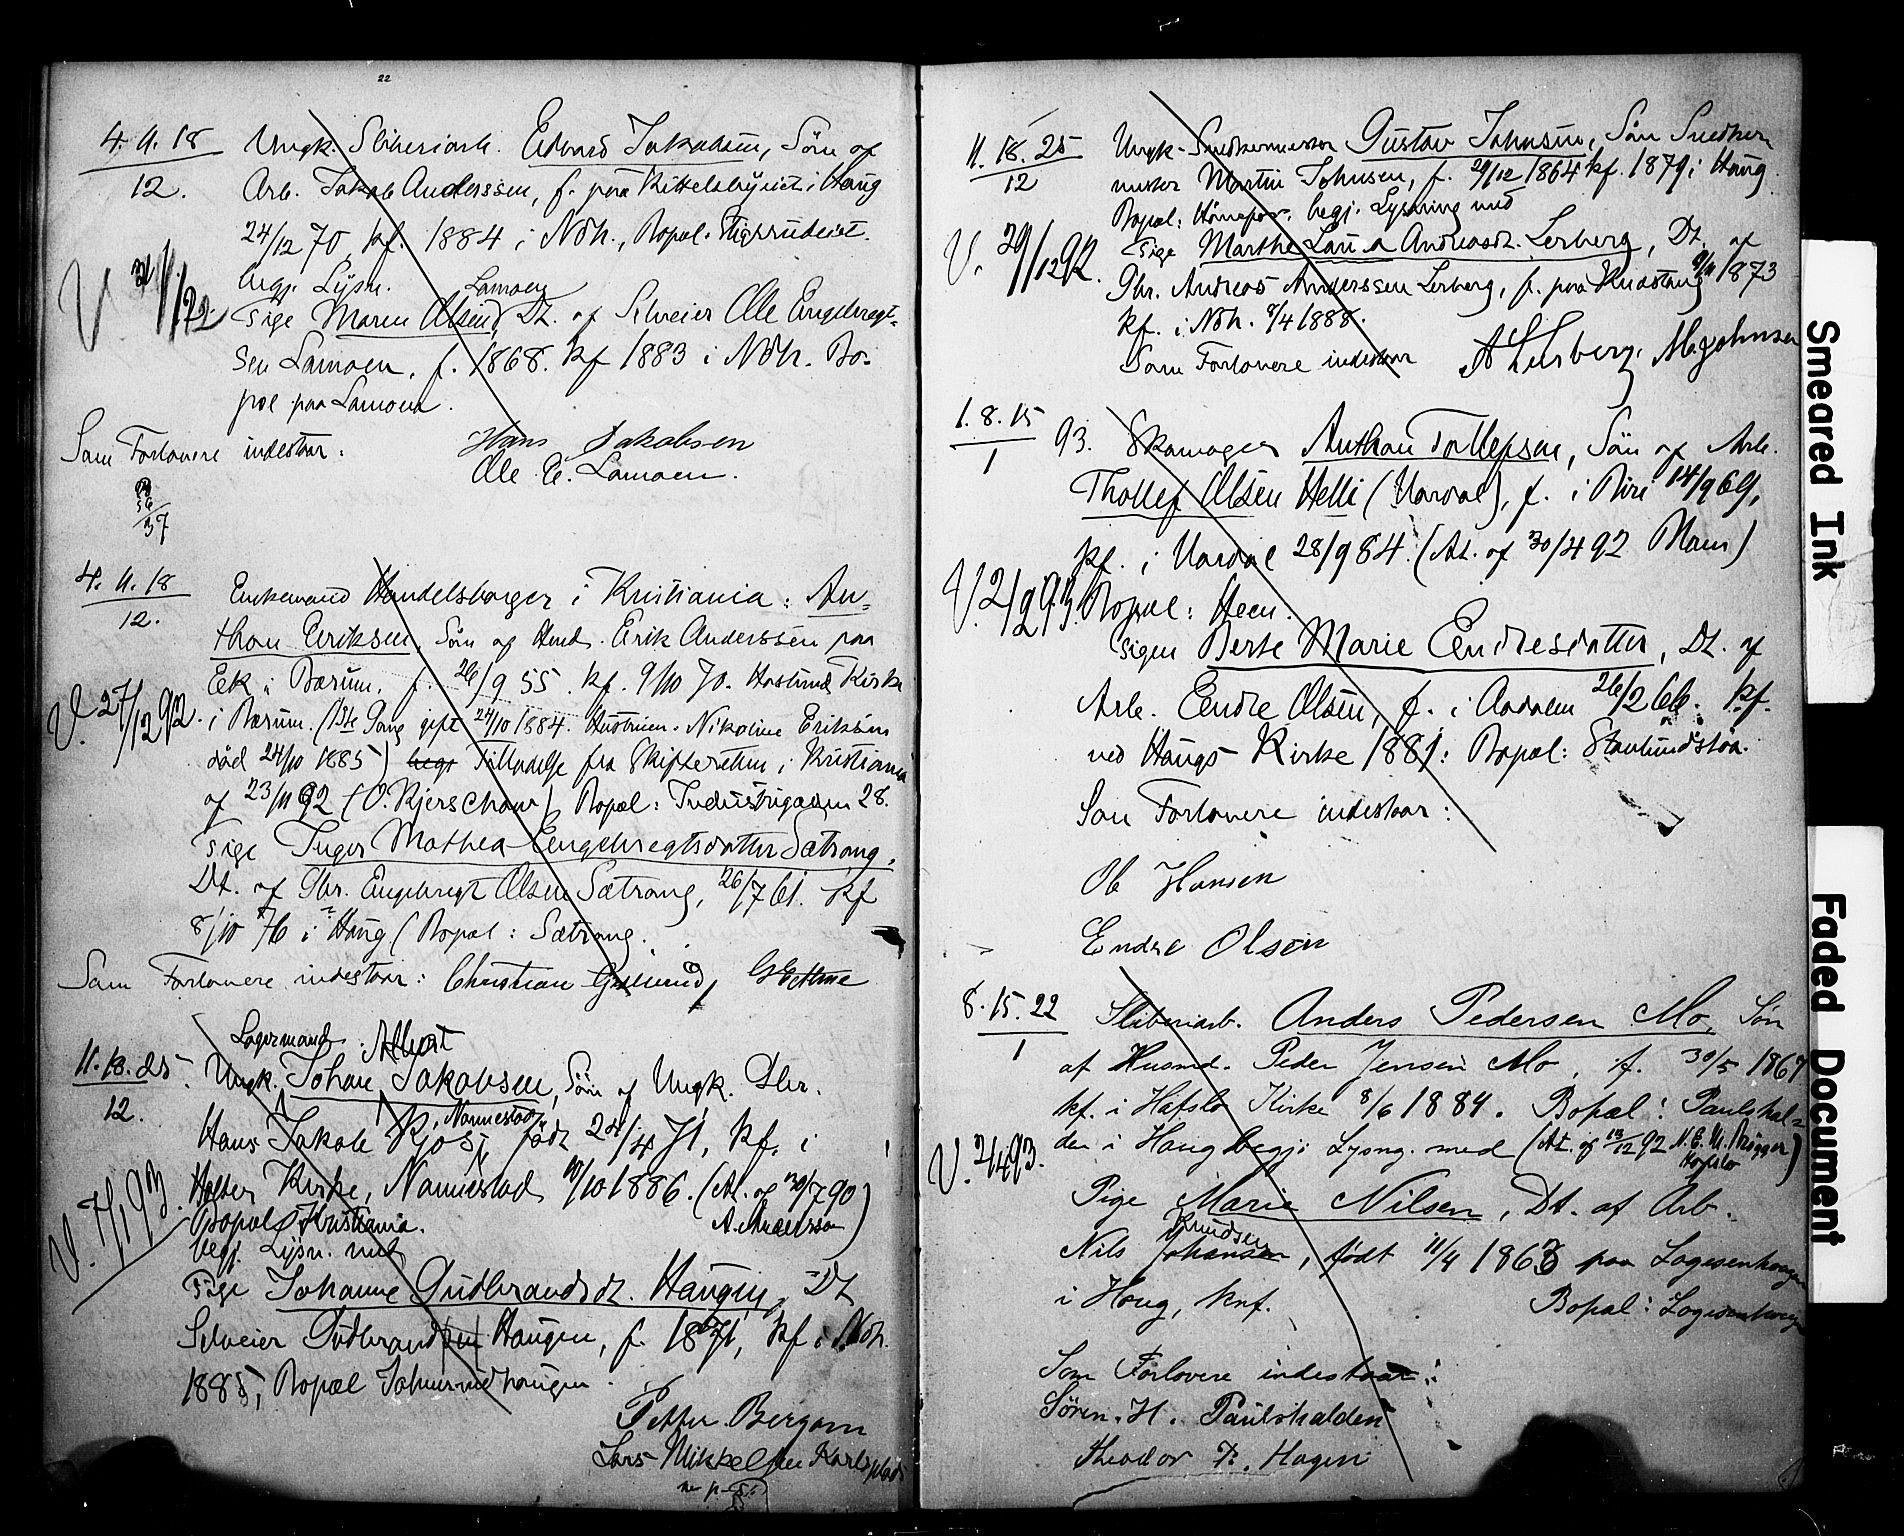 22
4. 11. 18
12.
Ungk. Sliberiarb. Edvard Jakobsen, Sön af
Arb. Jakob Anderssen, f. paa Kittelsbyeiet i Haug
24/12 70, kf. 1884 i Nöh., Bopæl:
begj. Lysn. Lamoen
Pige Maren Olsen, Dt. af Selveier Ole Engebregt-
sen Lamoen, f. 1868. kf 1883 i Nöh. Bo-
pæl paa Lamoen.
Som Forlovere indestaar:
Hans Jakobsen
Ole E. Lamoen.
37
4. 11. 18
12.
Enkemand Handelsborger i Kristiania: An-
thon Eriksen, Sön af Husmd. Erik Anderssen paa
Eek i Bærum, f. 26/9 55. kf. 9/10 70. Haslund Kirke
V. 27/12 92.
i Bærum. (1ste Gang gift 24/10 1884. Hustruen Nikoline Eriksen
död 24/10 1885) begj Tilladelse fra Skifteretten i Kristiania
af 23/11 92 (O. Kjerschow) Bopæl: Industrigaden 28.
Pige Inger Mathea Engebregtsdatter Sætrang,
Dt. af Gbr. Engebregt Olsen Sætrang, 26/7 61. kf
8/10 76 i Haug (Bopæl: Sætrang.
Som Forlovere indestaar: Christian
Lagermand Albert
11. 18. 25.
12.
Ungk. Johan Jakobsen, Sön af Ungk. Gbr.
Hans Jakob Kjos, Nannestad, födt 24/4 71, kf. i
Holter Kirke, Nannestad 10/10 1886. (At. af 30/7 90)
V. 7/1 93.
Bopæl Kristiania. A. Anderssen
begj. Lysn. med
Pige Johanne Gudbrandsdt. Haugen, Dt
Selveier Gudbrand Haugen, f. 1871, kf i Nöh.
1885, Bopæl
Petter Bergom
Lars Mikkelsen Karlsplads
11. 18. 25
12
Ungk. Snedkermester Gustav Johnsen, Sön Snedker
mester Martin Johnsen, f. 29/12 1864 kf. 1879 i Haug
Bopæl: Hönefos. begj. Lysning med
V. 29/12 92.
Pige Marthe Laura Andreasdt. Lerberg, Dt. af
Gbr. Andreas Anderssen Lerberg, f. paa 1873
kf. i Nöh. 8/4 1888.
Som Forlovere indestaar A Lerberg. M. Johnsen
1. 8. 15
1
93. Skomager Anthon Tollefsen, Sön af Arb.
Thollef Olsen Helli (Vardal), f. i Biri 14/9 69,
kf. i Vardal 28/9 84. (At. af 30/4 92 )
V. 2/2 93. Bopæl: Heen.
Pigen Berte Marie Endresdatter, Dt. af
Arb. Endre Olsen, f. i Aadalen 26/2 66. kf.
ved Haugs Kirke 1881: Bopæl:
Som Forlovere indestaar:
Ole Hansen
Endre Olsen
8. 15. 22
1
Sliberiarb. Anders Pedersen Mo, Sön
af Husmd. Peder Jensen Mo, f. 30/5 1867
kf. i Hafslo Kirke 8/6 1884. Bopæl: Paulshal-
den i Haug begj: Lysng. med (At. af 13/12 92 Hafslo)
V. 2/4 93.
Pige Marie Nilsen, Dt. af Arb.
Knudsen
Nils Johansen, födt 11/4 1863 paa Lagesenhaugen
i Haug, knf. Bopæl: Lagesenhaugen
Som Forlovere indestaar:
Sören. H. Paulshalden
Theodor P. Hagen
Smeared Ink
Faded Document